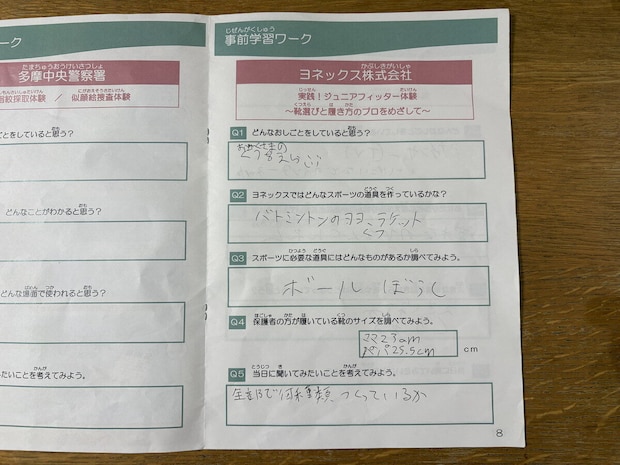 ーク
たまちゅうおうけいさつしょ
多摩中央警察署
指紋採取体験 / 似顔絵捜査体験
ごとをしていると思う?
どんなことがわかると思う?
どんな場面で使われると思う?
たいことを考えてみよう。
じぜんがくしゅう
事前学習ワーク
かぶしきがいしゃ
ヨネックス株式会社
実践!ジュニアフィッター体験
〜靴選びと履き方のプロをめざして〜
Q1 どんなおしごとをしていると思う?
Q2 ヨネックスではどんなスポーツの道具を作っているかな?
バトミントンの ラケット
くつ
Q3 スポーツに必要な道具にはどんなものがあるか調べてみよう。
ボール ぼうし
Q4 保護者の方が履いている靴のサイズを調べてみよう。
ママ23cm
パパ25.5cm
cm
Q5 当日に聞いてみたいことを考えてみよう。
何種類、つくっているか
8